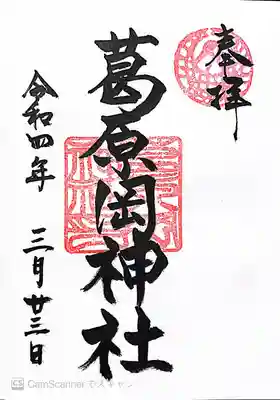 奉拝
葛原岡神社
令和四年 三月廿三日
CS CamScanner でスキャン